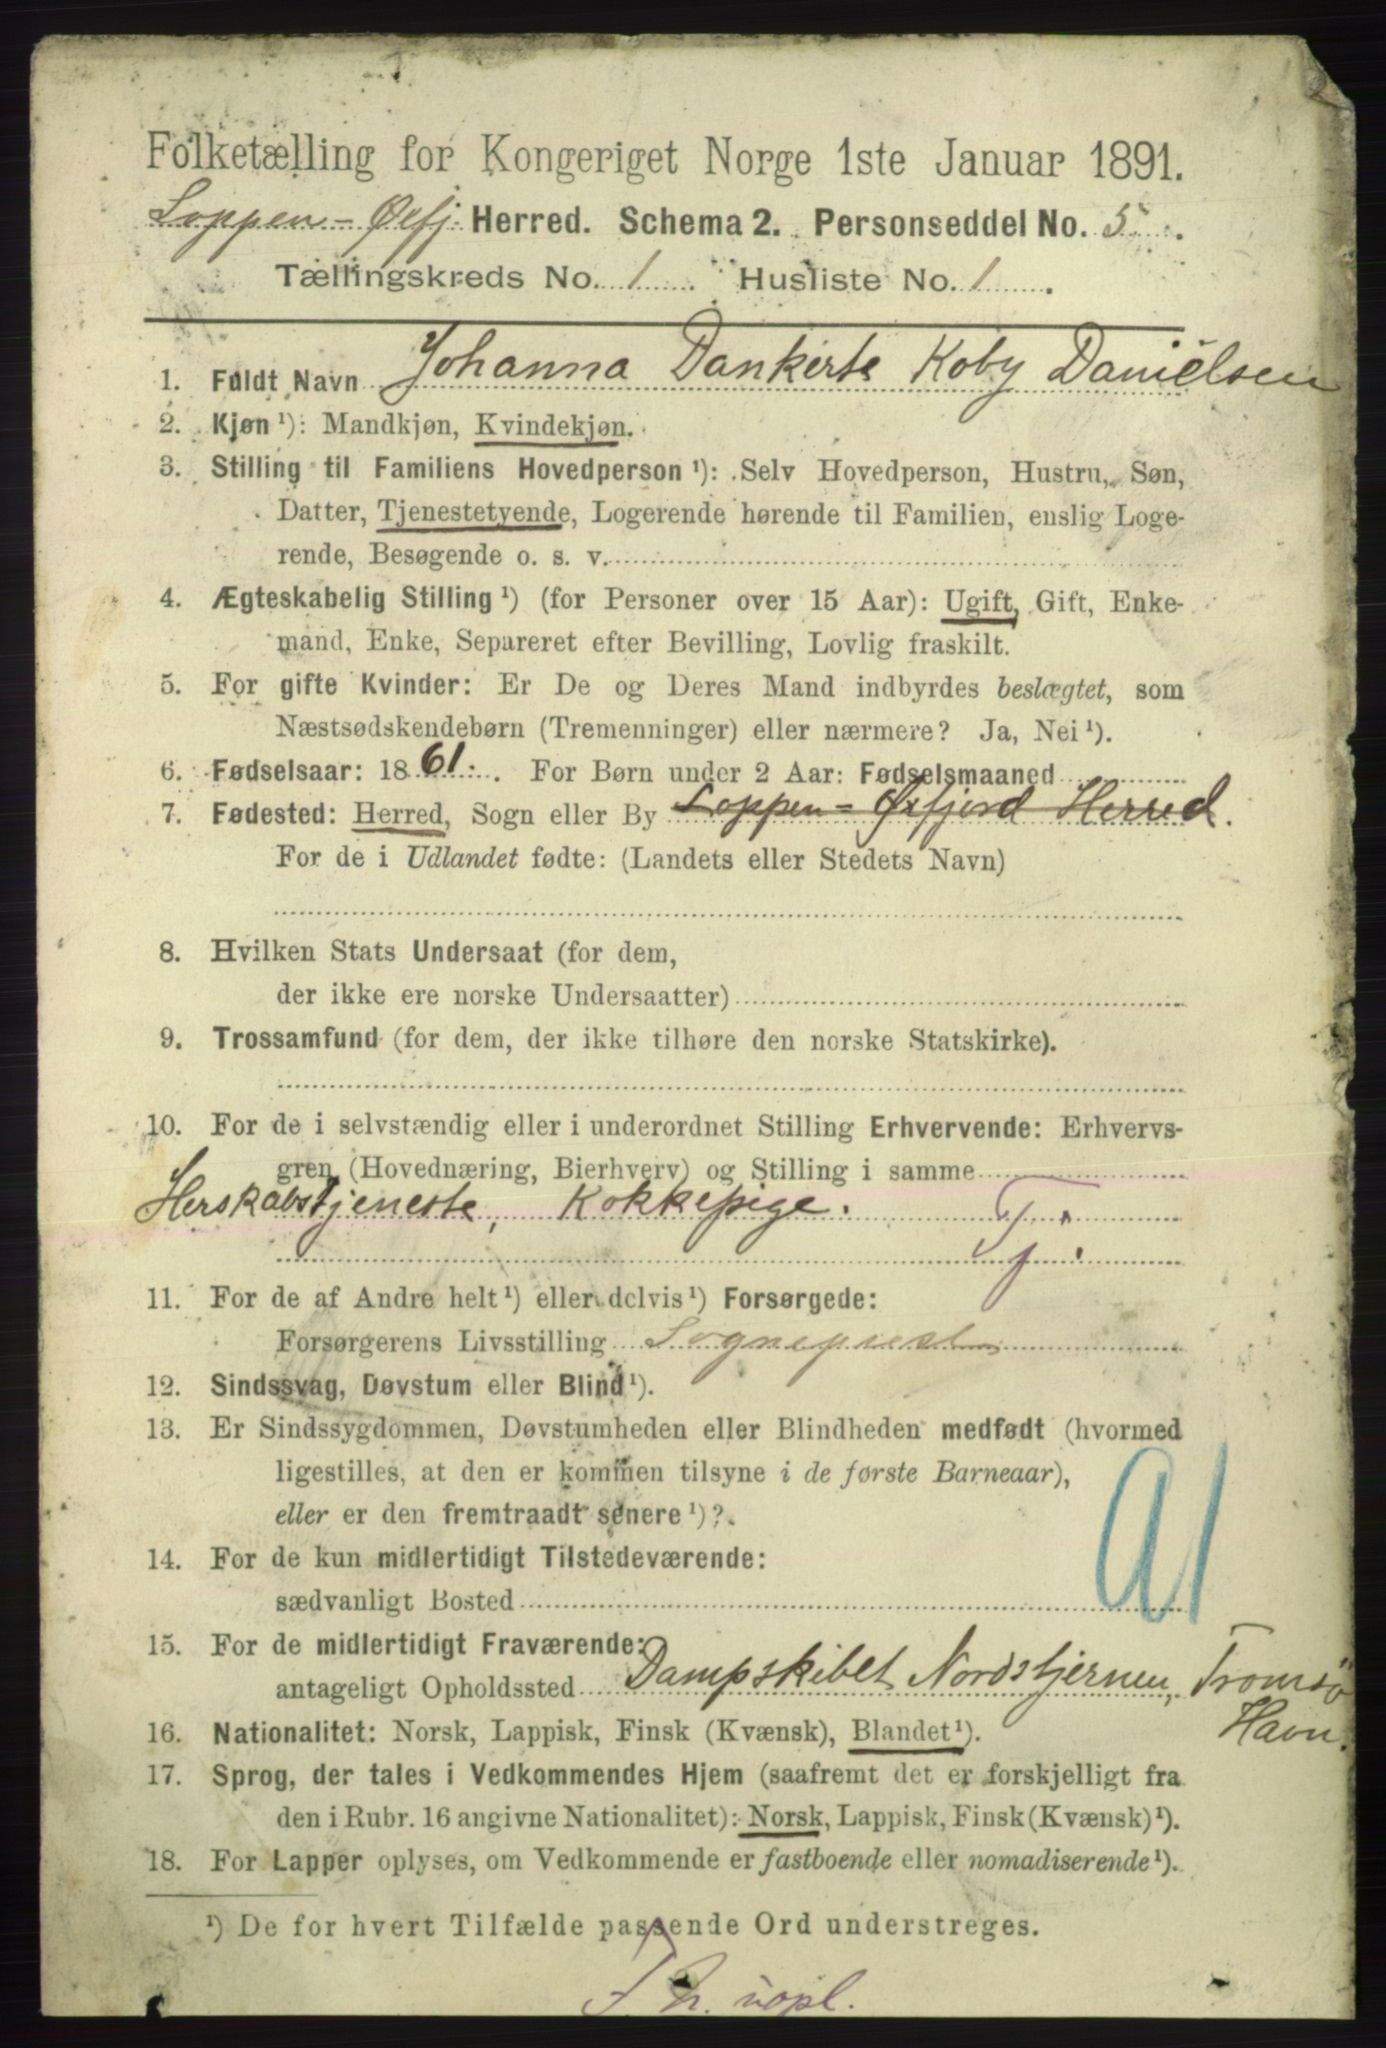 Folketælling for Kongeriget Norge 1ste Januar 1891.
Loppen-Øxfj. Herred. Schema 2. Personseddel No. 5.
Tællingskreds No. 1. Husliste No. 1.
1. Fuldt Navn Johanna Dankerte Koby Danielsen
2. Kjøn¹): Mandkjøn, Kvindekjøn.
3. Stilling til Familiens Hovedperson¹): Selv Hovedperson, Hustru, Søn,
Datter, Tjenestetyende, Logerende hørende til Familien, enslig Loge-
rende, Besøgende o. s. v.
4. Ægteskabelig Stilling¹) (for Personer over 15 Aar): Ugift, Gift, Enke-
mand, Enke, Separeret efter Bevilling, Lovlig fraskilt.
5. For gifte Kvinder: Er De og Deres Mand indbyrdes beslægtet, som
Næstsødskendebørn (Tremenninger) eller nærmere? Ja, Nei¹).
6. Fødselsaar: 1861. For Børn under 2 Aar: Fødselsmaaned
7. Fødested: Herred, Sogn eller By Loppen-Øxfjord Herred.
For de i Udlandet fødte: (Landets eller Stedets Navn)
8. Hvilken Stats Undersaat (for dem,
der ikke ere norske Undersaatter)
9. Trossamfund (for dem, der ikke tilhøre den norske Statskirke).
10. For de i selvstændig eller i underordnet Stilling Erhvervende: Erhvervs-
gren (Hovednæring, Bierhverv) og Stilling i samme
Herskabstjeneste, Kokkepige. Tj.
11. For de af Andre helt¹) eller delvis¹) Forsørgede:
Forsørgerens Livsstilling Sognepræsten
12. Sindssvag, Døvstum eller Blind¹).
13. Er Sindssygdommen, Døvstumheden eller Blindheden medfødt (hvormed
ligestilles, at den er kommen tilsyne i de første Barneaar),
eller er den fremtraadt senere¹)?
14. For de kun midlertidigt Tilstedeværende:
sædvanligt Bosted
15. For de midlertidigt Fraværende:
antageligt Opholdssted Dampskibet Nordstjernen, Tromsö
Havn.
16. Nationalitet: Norsk, Lappisk, Finsk (Kvænsk), Blandet¹).
17. Sprog, der tales i Vedkommendes Hjem (saafremt det er forskjelligt fra
den i Rubr. 16 angivne Nationalitet): Norsk, Lappisk, Finsk (Kvænsk)¹).
18. For Lapper oplyses, om Vedkommende er fastboende eller nomadiserende¹).
¹) De for hvert Tilfælde passende Ord understreges.